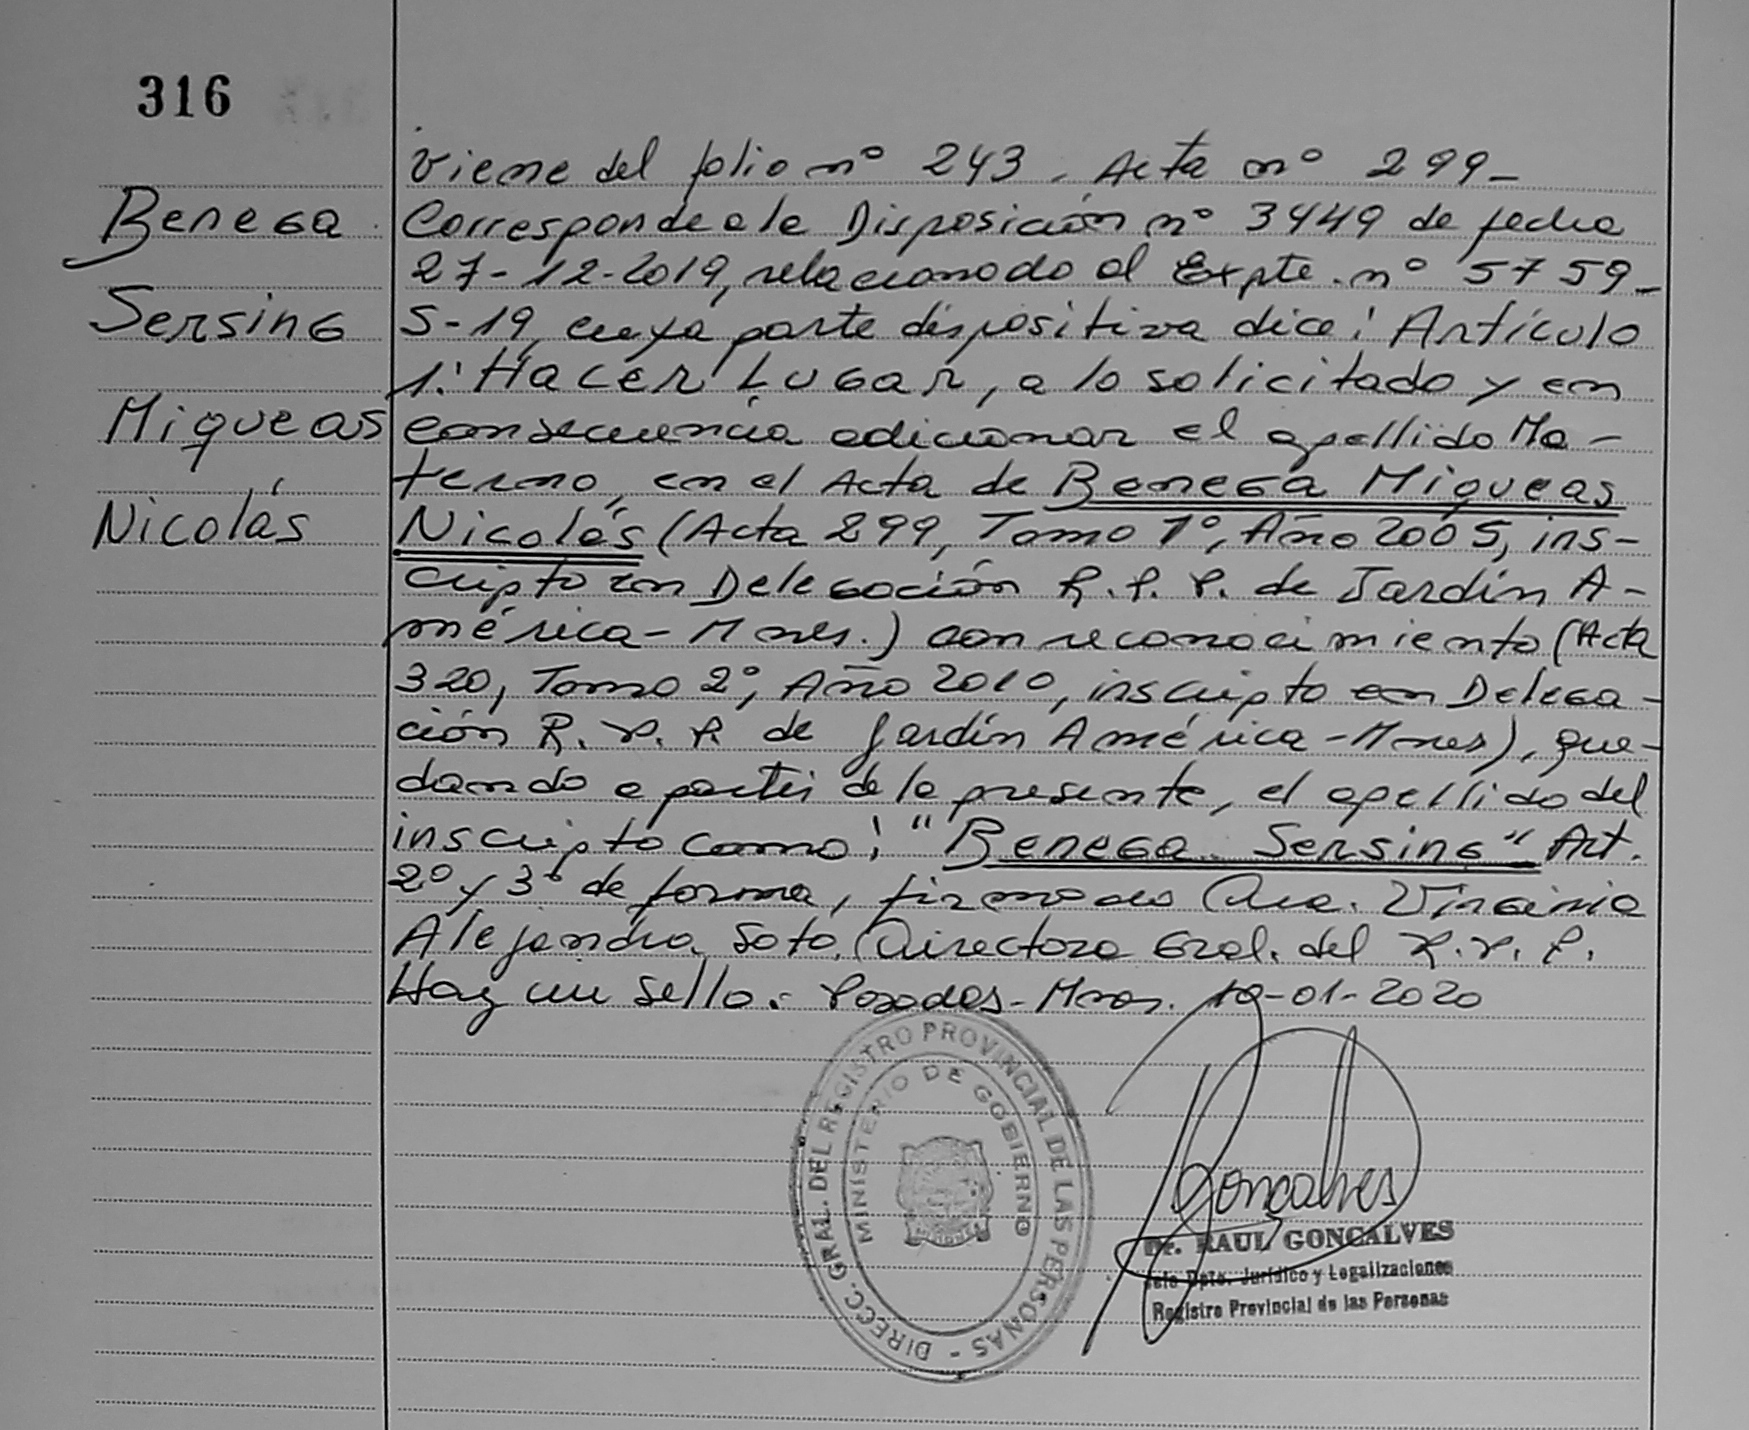 316
Benega
Sersing
Miqueas
Nicolás
Viene del folio nº 243. Acta nº 299_
Corresponde a la Disposición nº 3449 de fecha
27-12-2019, relacionado al Expte. nº 5759_
S-19, cuya parte dispositiva dice: Artículo
1: HACER LUGAR, a lo solicitado y en
consecuencia adicionar el apellido Ma-
terno, en el Acta de Benega Miqueas
Nicolás (Acta 299, Tomo 1º, Año 2005, ins-
cripto en Delegación R.P.P. de Jardín A-
mérica-Mnes.) con reconocimiento (Acta
320, Tomo 2º, Año 2010, inscripto en Delega-
ción R.P.P. de Jardín América-Mnes), que-
dando a partir de la presente, el apellido del
inscripto como: "Benega Sersing" Art.
2º y 3º de forma, firmado Dra. Virginia
Alejandra Soto. Directora Gral. del R.P.P.
Hay un sello. Posadas-Mnes. 10-01-2020
DIRECC. GRAL. DEL REGISTRO PROVINCIAL DE LAS PERSONAS -
MINISTERIO DE GOBIERNO
Goncalves
Dr. RAUL GONCALVES
Jefe Dpto. Jurídico y Legalizaciones
Registro Provincial de las Personas